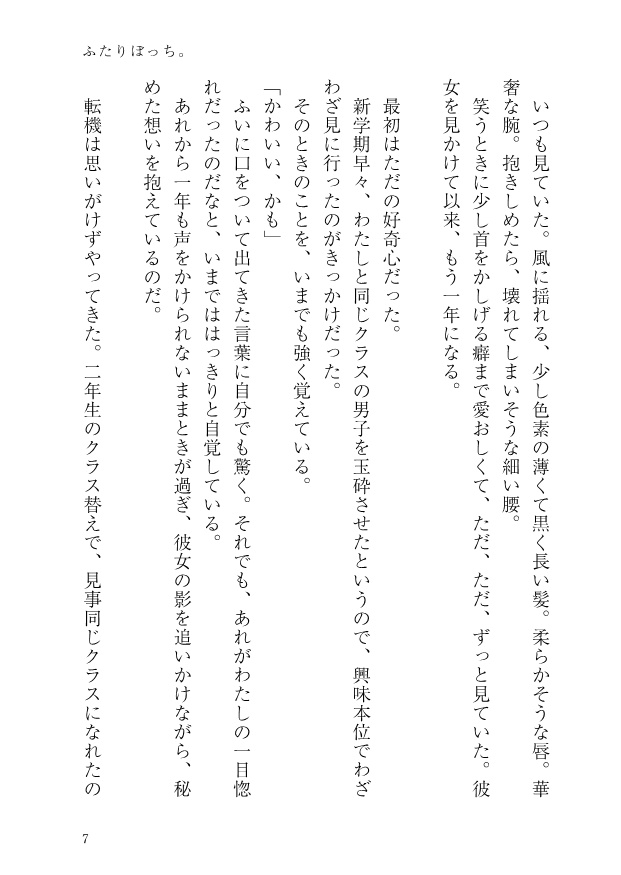 ふたりぼっち。
いつも見ていた。風に揺れる、少し色素の薄くて黒く長い髪。柔らかそうな唇。華
奢な腕。抱きしめたら、壊れてしまいそうな細い腰。
笑うときに少し首をかしげる癖まで愛おしくて、ただ、ただ、ずっと見ていた。彼
女を見かけて以来、もう一年になる。
最初はただの好奇心だった。
新学期早々、わたしと同じクラスの男子を玉砕させたというので、興味本位でわざ
わざ見に行ったのがきっかけだった。
そのときのことを、いまでも強く覚えている。
「かわいい、かも」
ふいに口をついて出てきた言葉に自分でも驚く。それでも、あれがわたしの一目惚
れだったのだなと、いまでははっきりと自覚している。
あれから一年も声をかけられないままときが過ぎ、彼女の影を追いかけながら、秘
めた想いを抱えているのだ。
転機は思いがけずやってきた。二年生のクラス替えで、見事同じクラスになれたの
7